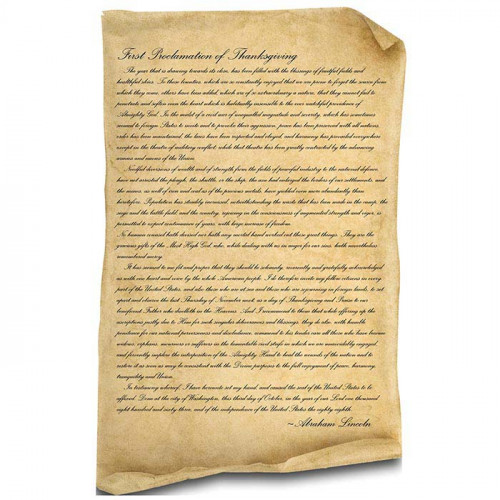 First Proclamation of Thanksgiving
The year that is drawing towards its close, has been filled with the blessings of fruitful fields and
healthful skies. To these bounties, which are so constantly enjoyed that we are prone to forget the source from
which they come, others have been added, which are of so extraordinary a nature, that they cannot fail to
penetrate and soften even the heart which is habitually insensible to the ever watchful providence of
Almighty God. In the midst of a civil war of unequalled magnitude and severity, which has sometimes
seemed to foreign States to invite and to provoke their aggression, peace has been preserved with all nations,
order has been maintained, the laws have been respected and obeyed, and harmony has prevailed everywhere
except in the theatre of military conflict; while that theatre has been greatly contracted by the advancing
armies and navies of the Union.
Needful diversions of wealth and of strength from the fields of peaceful industry to the national defence,
have not arrested the plough, the shuttle, or the ship; the axe had enlarged the borders of our settlements, and
the mines, as well of iron and coal as of the precious metals, have yielded even more abundantly than
heretofore. Population has steadily increased, notwithstanding the waste that has been made in the camp, the
siege and the battle field; and the country, rejoicing in the consciousness of augmented strength and vigor, is
permitted to expect continuance of years, with large increase of freedom.
No human counsel hath devised nor hath any mortal hand worked out these great things. They are the
gracious gifts of the Most High God, who, while dealing with us in anger for our sins, hath nevertheless
remembered mercy.
It has seemed to me fit and proper that they should be solemnly, reverently and gratefully acknowledged
as with one heart and voice by the whole American people. I do therefore invite my fellow citizens in every
part of the United States, and also those who are at sea and those who are sojourning in foreign lands, to set
apart and observe the last Thursday of November next, as a day of Thanksgiving and Praise to our
beneficent Father who dwelleth in the Heavens. And I recommend to them that while offering up the
ascriptions justly due to Him for such singular deliverances and blessings, they do also, with humble
penitence for our national perverseness and disobedience, commend to his tender care all those who have become
widows, orphans, mourners or sufferers in the lamentable civil strife in which we are unavoidably engaged,
and fervently implore the interposition of the Almighty Hand to heal the wounds of the nation and to
restore it as soon as may be consistent with the Divine purposes to the full enjoyment of peace, harmony,
tranquillity and Union.
In testimony whereof, I have hereunto set my hand, and caused the seal of the United States to be
affixed. Done at the city of Washington, this third day of October, in the year of our Lord one thousand
eight hundred and sixty three, and of the independence of the United States the eighty eighth.
~Abraham Lincoln